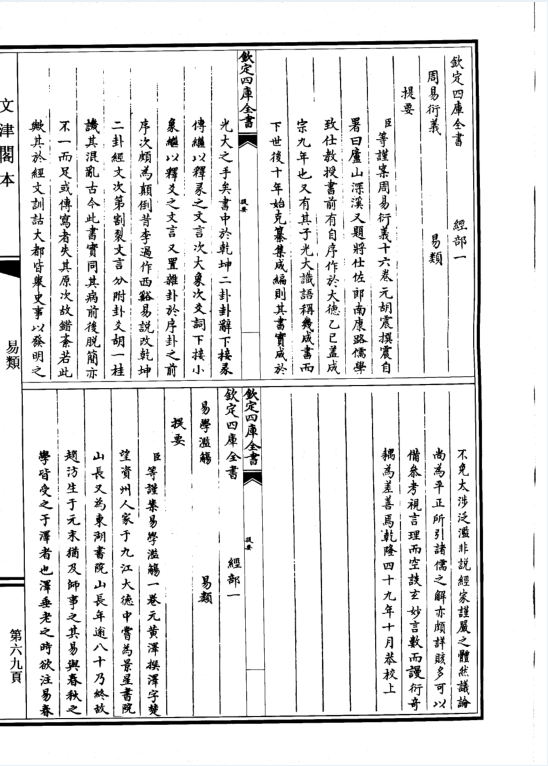 欽定四庫全書 經部一
周易衍義 易類
提要
臣等謹案周易衍義十六卷元胡震撰震自
署曰廬山深溪又題將仕佐郎南康路儒學
致仕教授書前有自序作於大德乙巳蓋成
宗九年也又有其子光大識語稱幾成書而
下世後十年始克纂集成編則其書實成於
欽定四庫全書 提要
光大之手矣書中於乾坤二卦卦辭下接彖
傳繼以釋彖之文言次大象次爻詞下接小
象繼以釋爻之文言又置雜卦於序卦之前
序次頗為顛倒昔李過作西谿易說改乾坤
二卦經文次第割裂文言分附卦爻胡一桂
譏其混亂古今此書實同其病前後脫簡亦
不一而足或傳寫者失其原次故錯紊若此
歟其於經文訓詁大都皆舉史事以發明之
不免太涉泛濫非說經家謹嚴之體然議論
尚為平正所引諸儒之解亦頗詳賅多可以
備參考視言理而空談玄妙言數而謾衍奇
耦為差善焉乾隆四十九年十月恭校上
欽定四庫全書 提要
欽定四庫全書 經部一
易學濫觴 易類
提要
臣等謹案易學濫觴一卷元黃澤撰澤字楚
望資州人家于九江大德中嘗為景星書院
山長又為東湖書院山長年逾八十乃終故
趙汸生于元末猶及師事之其易與春秋之
學皆受之于澤者也澤垂老之時欲注易春
文津閣本
易類
第六九頁